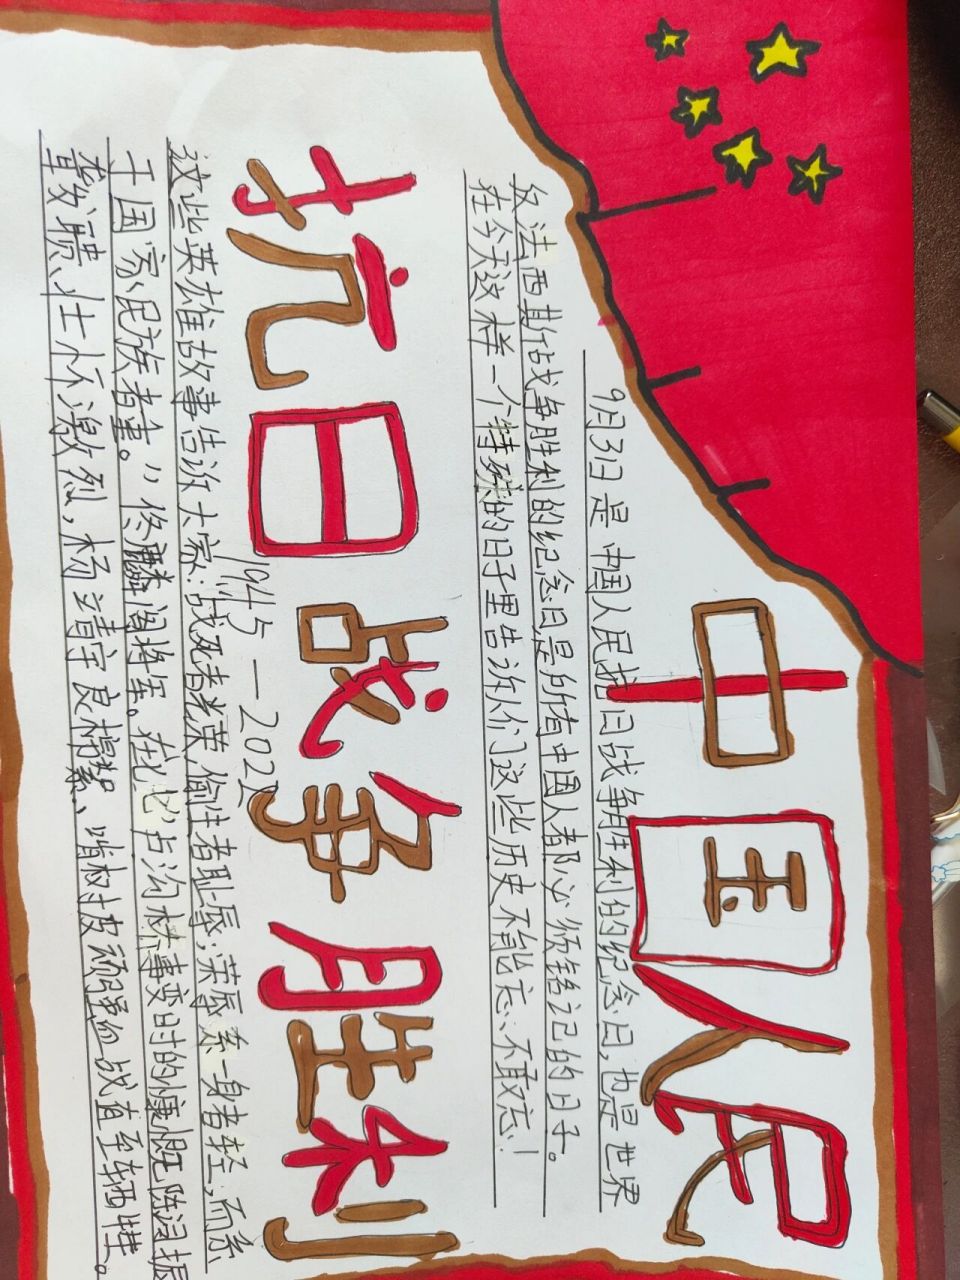 中国人民
9月3日是中国人民抗日战争胜利的纪念日,也是世界
反法西斯战争胜利的纪念日是所有中国人都必须铭记的日子。
在今天这样一个特殊的日子里告诉他们这些历史不能忘、不敢忘!
抗日战争胜利
1945—2022
这些英雄故事告诉大家:战死者光荣偷生者耻辱;荣辱系一身者轻,而系
于国家民族者重。”佟麟阁将军。在七七卢沟桥事变时的慷慨陈词振
聋发聩、壮怀激烈,杨靖宇良棉絮、啃树皮顽强血战直至牺牲。